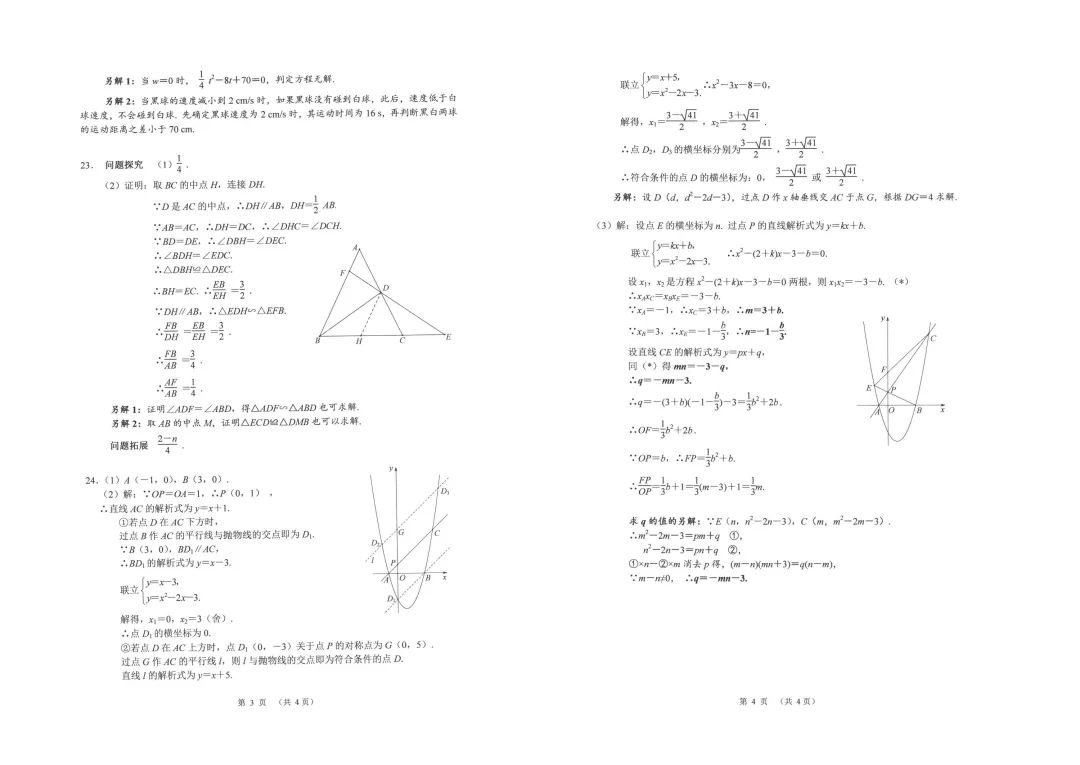 另解 1：当 w＝0 时，1/4 t²－8t+70＝0，判定方程无解.
另解 2：当黑球的速度减小到 2 cm/s 时，如果黑球没有碰到白球，此后，速度低于白
球速度，不会碰到白球. 先确定黑球速度为 2 cm/s 时，其运动时间为 16 s，再判断黑白两球
的运动距离之差小于 70 cm.
23. 问题探究 （1）1/4 .
（2）证明：取 BC 的中点 H，连接 DH.
∵D 是 AC 的中点，∴DH∥AB，DH＝1/2 AB.
∵AB＝AC，∴DH＝DC，∴∠DHC＝∠DCH.
∵BD＝DE，∴∠DBH＝∠DEC.
∴∠BDH＝∠EDC.
∴△DBH≌△DEC.
∴BH＝EC. ∴EB/EH＝3/2 .
∵DH∥AB，∴△EDH∽△EFB.
∴FB/DH＝EB/EH＝3/2 .
∴FB/AB＝3/4 .
∴AF/AB＝1/4 .
A
F
D
B H C E
另解 1：证明∠ADF＝∠ABD，得△ADF∽△ABD 也可求解.
另解 2：取 AB 的中点 M，证明△ECD≌△DMB 也可以求解.
问题拓展 2－n/4 .
24.（1）A（－1，0），B（3，0）.
（2）解：∵OP＝OA＝1，∴P（0，1），
∴直线 AC 的解析式为 y＝x+1.
①若点 D 在 AC 下方时，
过点 B 作 AC 的平行线与抛物线的交点即为 D₁.
∵B（3，0），BD₁∥AC，
∴BD₁ 的解析式为 y＝x－3.
联立{y＝x－3，
y＝x²－2x－3.
解得，x₁＝0，x₂＝3（舍）.
∴点 D₁ 的横坐标为 0.
②若点 D 在 AC 上方时，点 D₁（0，－3）关于点 P 的对称点为 G（0，5）.
过点 G 作 AC 的平行线 l，则 l 与抛物线的交点即为符合条件的点 D.
直线 l 的解析式为 y＝x+5.
y
D₃
G
C
D₂
l P
A O B x
D₁
第 3 页 （共 4 页）
联立{y＝x+5，
y＝x²－2x－3.
∴x²－3x－8＝0，
解得，x₁＝3－√41/2 ，x₂＝3＋√41/2 .
∴点 D₂，D₃ 的横坐标分别为3－√41/2 ，3＋√41/2 .
∴符合条件的点 D 的横坐标为：0， 3－√41/2 或 3＋√41/2 .
另解：设 D（d，d²－2d－3），过点 D 作 x 轴垂线交 AC 于点 G，根据 DG＝4 求解.
（3）解：设点 E 的横坐标为 n. 过点 P 的直线解析式为 y＝kx+b.
联立{y＝kx+b，
y＝x²－2x－3.
∴x²－(2＋k)x－3－b＝0.
设 x₁，x₂ 是方程 x²－(2＋k)x－3－b＝0 两根，则 x₁x₂＝－3－b.（*）
∴x_Ax_C＝x_Bx_E＝－3－b.
∵x_A＝－1，∴x_C＝3＋b，∴m＝3＋b.
∵x_B＝3，∴x_E＝－1－b/3，∴n＝－1－b/3.
设直线 CE 的解析式为 y＝px＋q，
同（*）得 mn＝－3－q，
∴q＝－mn－3.
∴q＝－(3＋b)(－1－b/3)－3＝1/3b²＋2b .
∴OF＝1/3b²＋2b .
∵OP＝b，∴FP＝1/3b²＋b.
∴FP/OP＝1/3b＋1＝1/3(m－3)＋1＝1/3m.
y
C
F
E
P
A O B x
求 q 的值的另解：∵E（n，n²－2n－3），C（m，m²－2m－3）.
∴m²－2m－3＝pm＋q ①，
n²－2n－3＝pn＋q ②，
①×n－②×m 消去 p 得，(m－n)(mn＋3)＝q(n－m)，
∵m－n≠0， ∴q＝－mn－3.
第 4 页 （共 4 页）